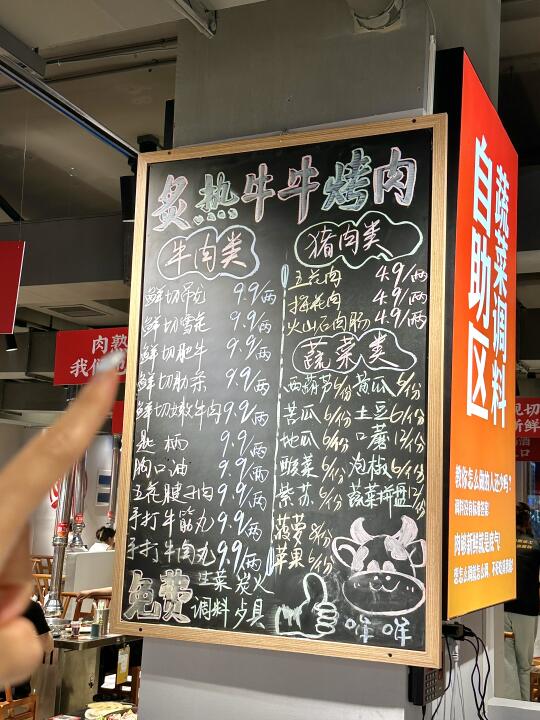 炙热牛牛烤肉
牛肉类
鲜切吊龙 9.9/两
鲜切雪花 9.9/两
鲜切肥牛 9.9/两
鲜切肋条 9.9/两
鲜切嫩牛肉 9.9/两
匙柄 9.9/两
胸口油 9.9/两
五花腱子肉 9.9/两
手打牛筋丸 9.9/两
手打牛肉丸 9.9/两
免费 生菜 炭火
调料 夕具
猪肉类
五花肉 4.9/两
梅花肉 4.9/两
火山石肉肠 4.9/两
蔬菜类
西葫芦6/份 黄瓜6/份
苦瓜6/份 土豆6/份
地瓜6/份 口蘑12/份
酸菜6/份 泡椒6/份
紫苏6/份 蔬菜拼盘12/份
菠萝8/份
苹果6/份
哞 哞
蔬菜调料
自助区
教你怎么做油人还少吗?
肉够新鲜就是底气!
肉熟
我们
现切
新鲜